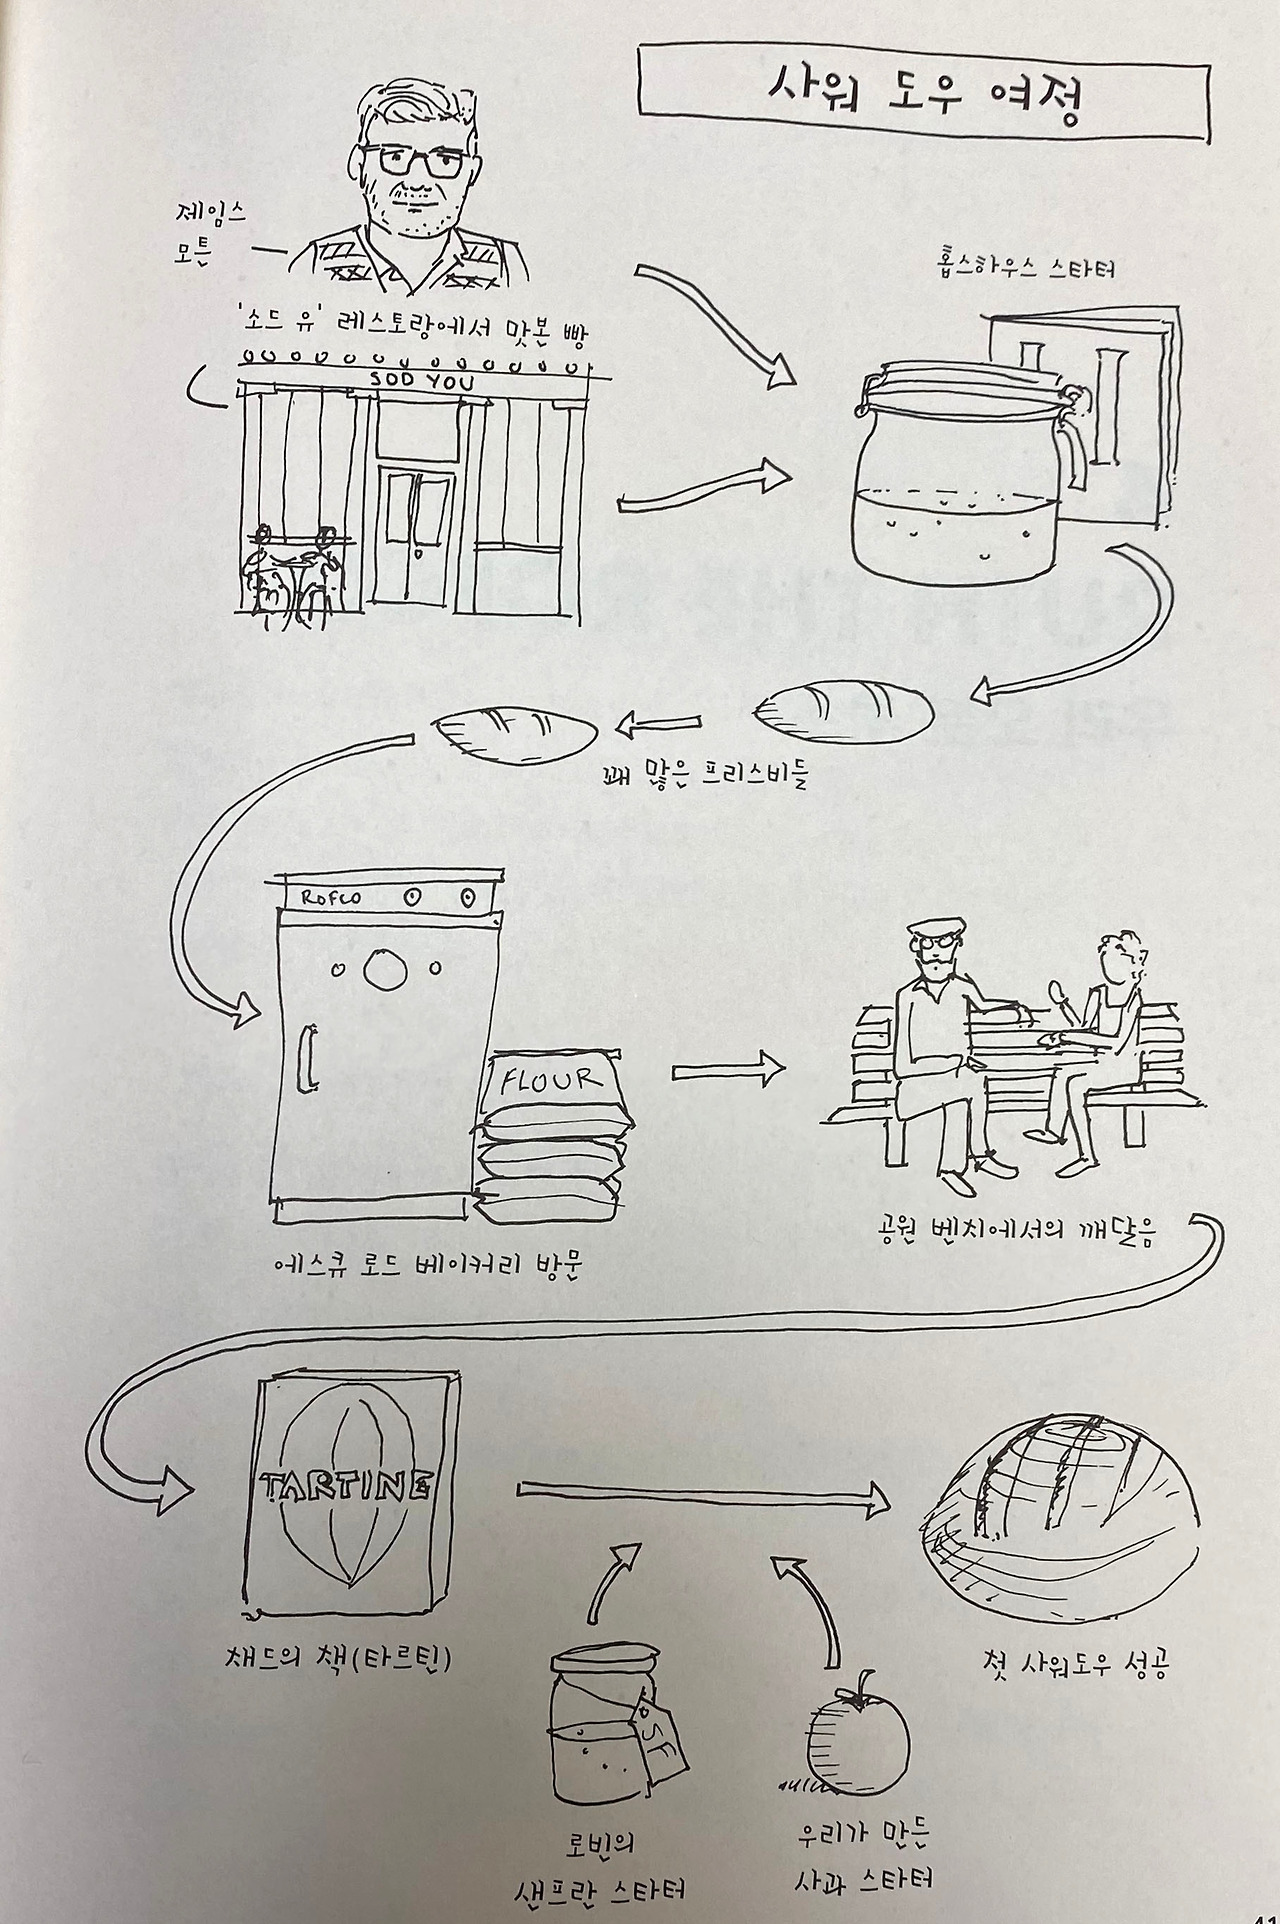 사워 도우 여정
제임스
모튼
'소드 유' 레스토랑에서 맛본 빵
SOD YOU
홉스하우스 스타터
꽤 많은 프리스비들
ROFCO
FLOUR
에스큐 로드 베이커리 방문
공원 벤치에서의 깨달음
TARTINE
채드의 책(타르틴)
첫 사워도우 성공
SF
로빈의
샌프란 스타터
우리가 만든
사과 스타터